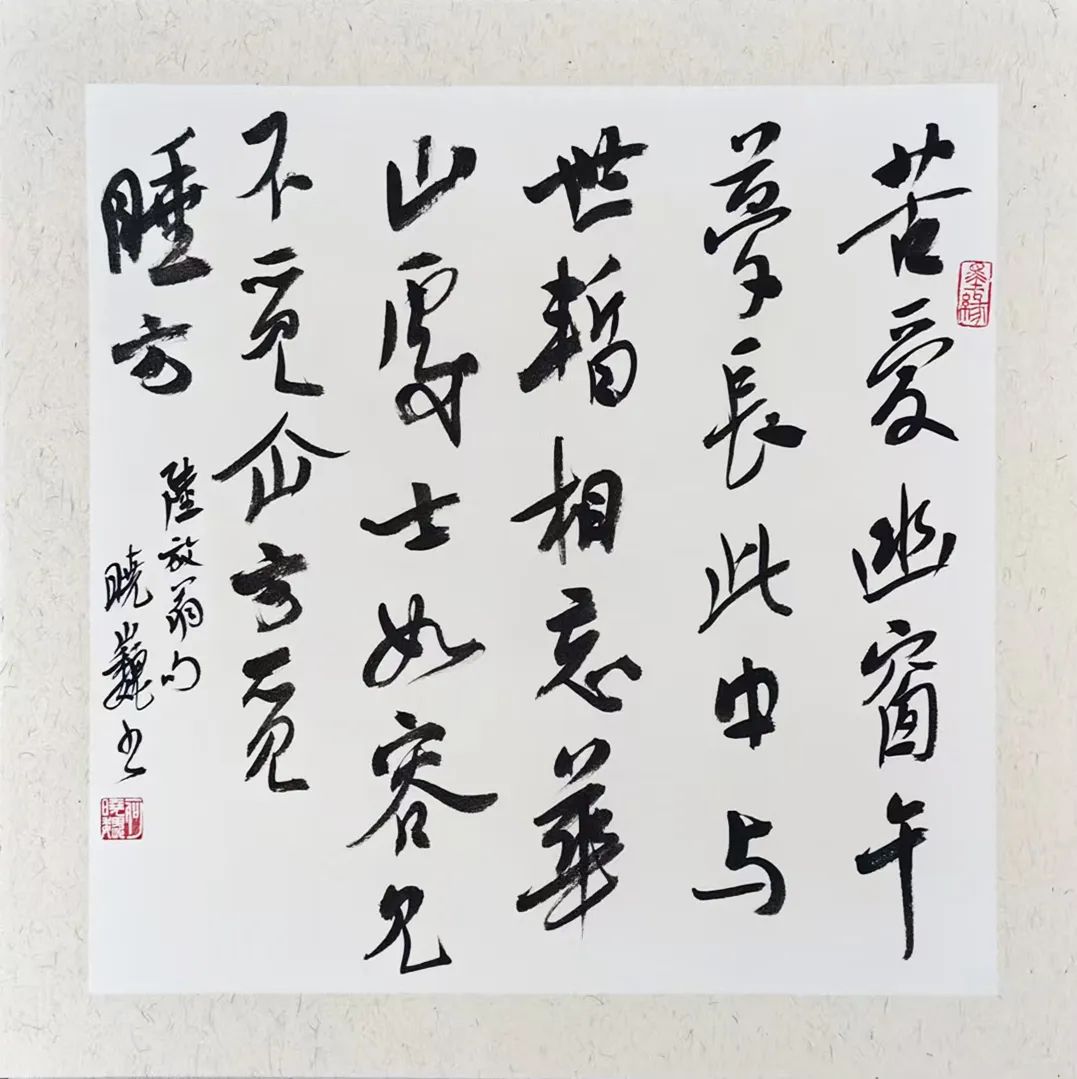 苦愛幽窗午
夢長此中与
世暫相忘華
山處士如容見
不覓仚方覓
睡方
陸放翁句
曉巍书
墨緣